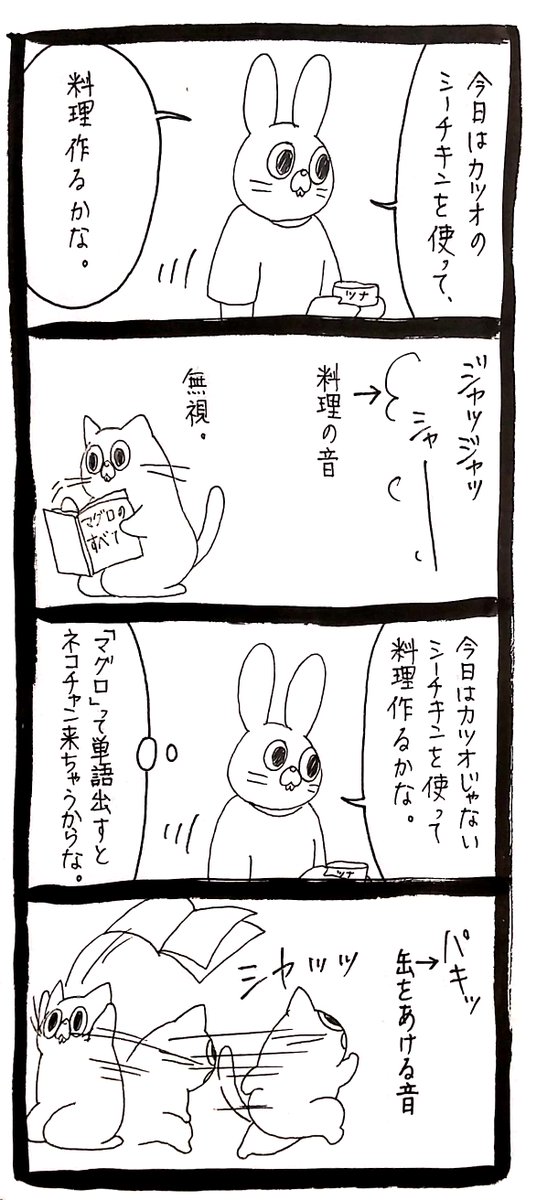 今日はカツオの
シーチキンを使って、
料理作るかな。
ツナ
ジャッジャッ
シャー
料理の音
無視。
マグロの
すべて
今日はカツオじゃない
シーチキンを使って
料理作るかな。
「マグロ」って単語出すと
ネコチャン来ちゃうからな。
ツナ
パキッ
缶をあける音
シャッッッ